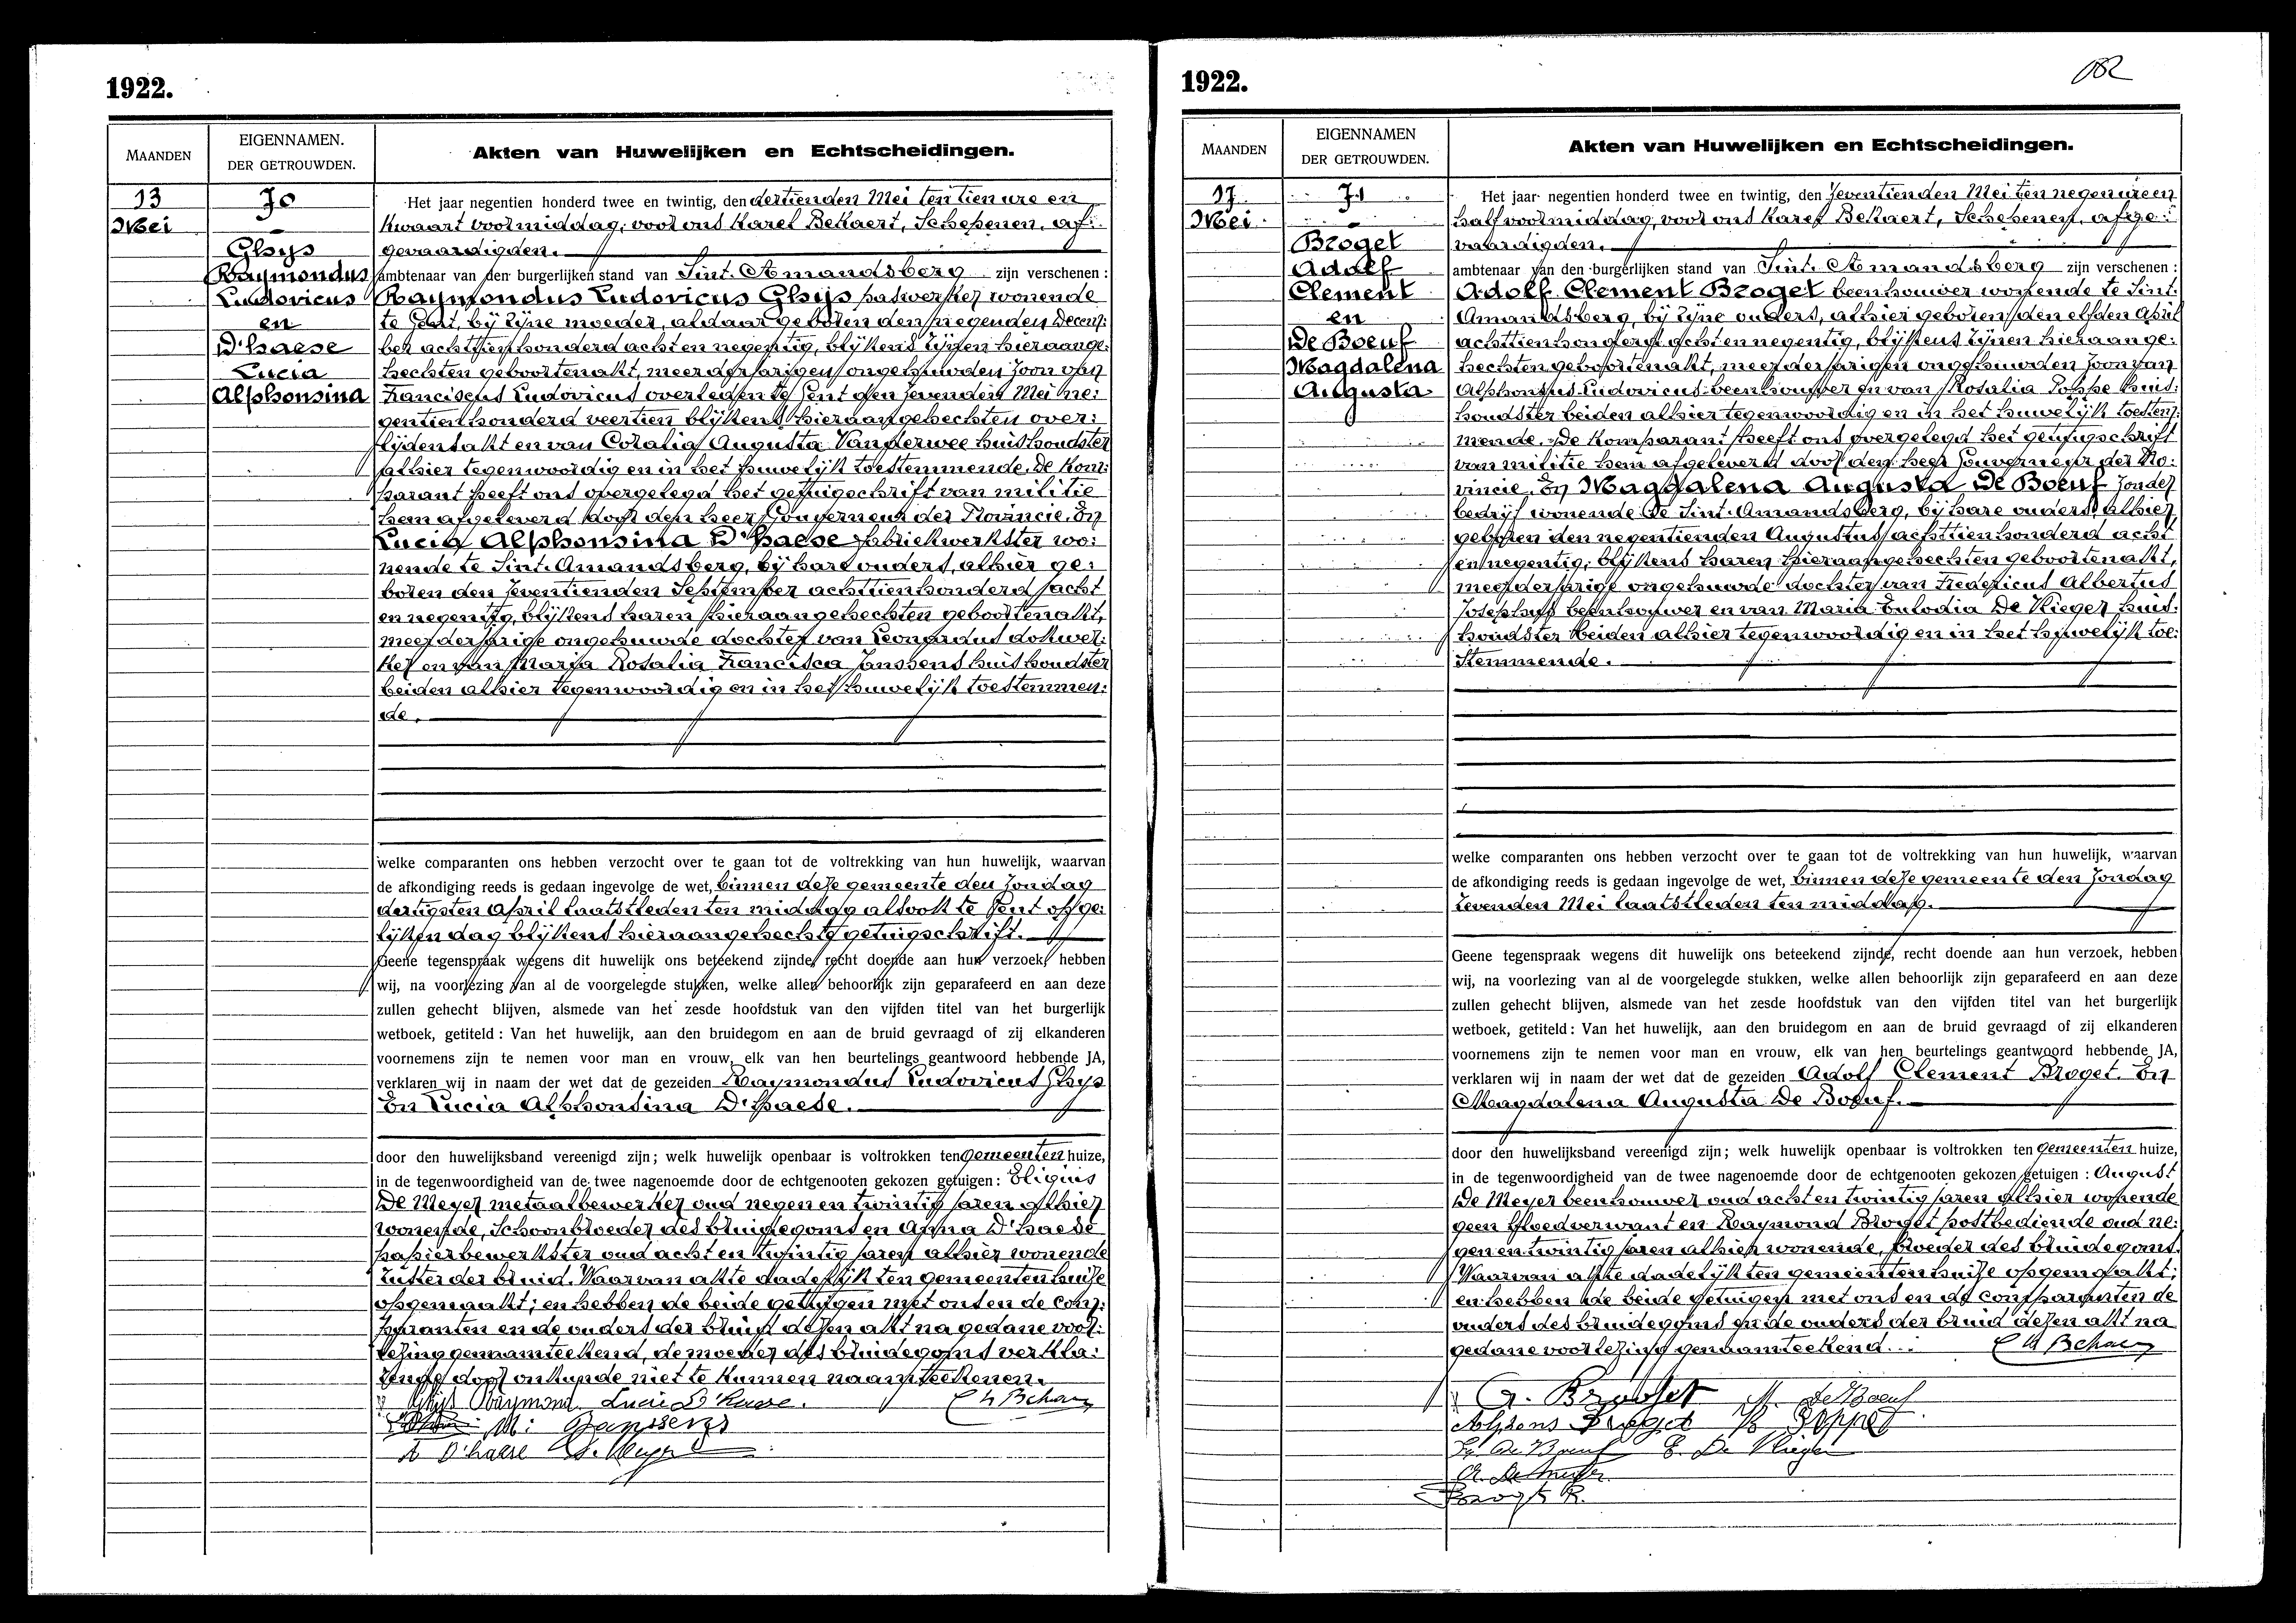 1922.
MAANDEN
EIGENNAMEN.
DER GETROUWDEN.
Akten van Huwelijken en Echtscheidingen.
13
Mei
70
Ghys
Raymondus
Ludovicus
en
D'haese
Lucia
Alphonsina
Het jaar negentien honderd twee en twintig, den dertienden Mei ten tien ure en
kwaart voormiddag, voor ons Karel Bekaert, Schepenen, af:
gevaardigden.
ambtenaar van den burgerlijken stand van Sint-Amandsberg zijn verschenen :
Raymondus Ludovicus Ghys paswerker wonende
te Gent, bij zijne moeder, aldaar geboren den negenden Decem:
ber achttienhonderd acht en negentig, blijkens zijnen hieraange:
hechten geboortenakt, meerderjarigen ongehuwden zoon van
Franciscus Ludovicus overleden te Gent den zevenden Mei ne:
gentienhonderd veertien blijkens hieraangehechten over:
lijdensakt en van Coralia Augusta Vanderwee huishoudster
alhier tegenwoordig en in het huwelijk toestemmende. De kom:
parant heeft ons overgelegd het getuigschrift van militie
hem afgeleverd door den heer Gouverneur der Provincie. En
Lucia Alphonsina D'haese fabriekwerkster wo:
nende te Sint-Amandsberg, bij hare ouders, alhier ge:
boren den zeventienden September achttienhonderd acht
en negentig, blijkens haren hieraangehechten geboortenakt,
meerderjarige ongehuwde dochter van Leonardus dokwer:
ker en van Maria Rosalia Francisca Janssens huishoudster
beiden alhier tegenwoordig en in het huwelijk toestemmen:
de.
welke comparanten ons hebben verzocht over te gaan tot de voltrekking van hun huwelijk, waarvan
de afkondiging reeds is gedaan ingevolge de wet, binnen deze gemeente den zondag
dertigsten April laatstleden ten middag alsook te Gent op ge:
lijken dag blijkens hieraangehecht getuigschrift.
Geene tegenspraak wegens dit huwelijk ons beteekend zijnde, recht doende aan hun verzoek, hebben
wij, na voorlezing van al de voorgelegde stukken, welke allen behoorlijk zijn geparafeerd en aan deze
zullen gehecht blijven, alsmede van het zesde hoofdstuk van den vijfden titel van het burgerlijk
wetboek, getiteld : Van het huwelijk, aan den bruidegom en aan de bruid gevraagd of zij elkanderen
voornemens zijn te nemen voor man en vrouw, elk van hen beurtelings geantwoord hebbende JA,
verklaren wij in naam der wet dat de gezeiden Raymondus Ludovicus Ghys
En Lucia Alphonsina D'haese.
door den huwelijksband vereenigd zijn; welk huwelijk openbaar is voltrokken ten gemeenten huize,
in de tegenwoordigheid van de twee nagenoemde door de echtgenooten gekozen getuigen : Eligius
De Meyer metaalbewerker oud negen en twintig jaren alhier
wonende, schoonbroeder des bruidegoms en Anna D'haese
papierbewerkster oud acht en twintig jaren alhier wonende
zuster der bruid. Waarvan akte dadelijk ten gemeentenhuize
opgemaakt; en hebben de beide getuigen met ons en de com:
paranten en de ouders der bruid dezen akt na gedane voor:
lezing genaamteekend, de moeder des bruidegoms verkla:
rende door onkunde niet te kunnen naamteekenen.
Ghijs Raymond Lucie D'haese.
M: Janssens
A D'haese
1922.
082
MAANDEN
EIGENNAMEN
DER GETROUWDEN.
Akten van Huwelijken en Echtscheidingen.
17
Mei
71
Broget
Adolf
Clement
en
De Boeuf
Magdalena
Augusta
Het jaar negentien honderd twee en twintig, den zeventienden Mei ten negen ure en
half voormiddag, voor ons Karel Bekaert, Schepenen, afge:
vaardigden.
ambtenaar van den burgerlijken stand van Sint-Amandsberg zijn verschenen :
Adolf Clement Broget beenhouwer wonende te Sint-
Amandsberg, bij zijne ouders, alhier geboren den elfden April
achttienhonderd acht en negentig, blijkens zijnen hieraange:
hechten geboortenakt, meerderjarigen ongehuwden zoon van
Alphonsus Ludovicus beenhouwer en van Rosalia Poppe huis:
houdster beiden alhier tegenwoordig en in het huwelijk toestem:
mende. De komparant heeft ons overgelegd het getuigschrift
van militie hem afgeleverd door den heer Gouverneur der Pro:
vincie. En Magdalena Augusta De Boeuf zonder
bedrijf wonende te Sint-Amandsberg, bij hare ouders, alhier
geboren den negentienden Augustus achttienhonderd acht
en negentig, blijkens haren hieraangehechten geboortenakt,
meerderjarige ongehuwde dochter van Fredericus Albertus
Josephus beenhouwer en van Maria Eulodia De Vlieger huis:
houdster beiden alhier tegenwoordig en in het huwelijk toe:
stemmende.
welke comparanten ons hebben verzocht over te gaan tot de voltrekking van hun huwelijk, waarvan
de afkondiging reeds is gedaan ingevolge de wet, binnen deze gemeente den zondag
zevenden Mei laatstleden ten middag.
Geene tegenspraak wegens dit huwelijk ons beteekend zijnde, recht doende aan hun verzoek, hebben
wij, na voorlezing van al de voorgelegde stukken, welke allen behoorlijk zijn geparafeerd en aan deze
zullen gehecht blijven, alsmede van het zesde hoofdstuk van den vijfden titel van het burgerlijk
wetboek, getiteld : Van het huwelijk, aan den bruidegom en aan de bruid gevraagd of zij elkanderen
voornemens zijn te nemen voor man en vrouw, elk van hen beurtelings geantwoord hebbende JA,
verklaren wij in naam der wet dat de gezeiden Adolf Clement Broget. En
Magdalena Augusta De Boeuf.
door den huwelijksband vereenigd zijn; welk huwelijk openbaar is voltrokken ten gemeenten huize,
in de tegenwoordigheid van de twee nagenoemde door de echtgenooten gekozen getuigen : August
De Meyer beenhouwer oud acht en twintig jaren alhier wonende
geen bloedverwant en Raymond Broget postbediende oud ne:
gen en twintig jaren alhier wonende, broeder des bruidegoms.
Waarvan akte dadelijk ten gemeentenhuize opgemaakt;
en hebben de beide getuigen met ons en de comparanten de
ouders des bruidegoms en de ouders der bruid dezen akt na
gedane voorlezing genaamteekend.
A. Broget M. De Boeuf
Alfons Broget R Poppe
De Boeuf E. De Vlieger
Broget R.